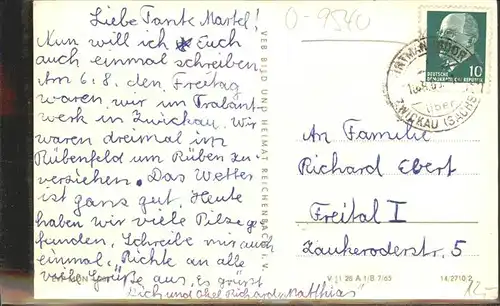 Liebe Tante Martel!
Nun will ich Euch
auch einmal schreiben
Am 6.8. den Freitag
waren wir im Trabant
werk in Zwickau. Wir
waren dreimal im
Rübenfeld um Rüben zu
verziehen. Das Wetter
ist ganz gut. Heute
haben wir viele Pilze ge
funden. Schreibe mir auch
einmal. Richte an alle
viele Grüße aus. Es grüßt
Dich und Onkel Richard Matthias
VEB BILD UND HEIMAT REICHENBACH I. V.
0-9540
DEUTSCHE
DEMOKRATISCHE REPUBLIK
10
über
ZWICKAU (SACHS)
An Familie
Richard Ebert
Freital I
Zauckeroderstr. 5
V 11 26 A 1/B 7/65
14/2710-2
12.-